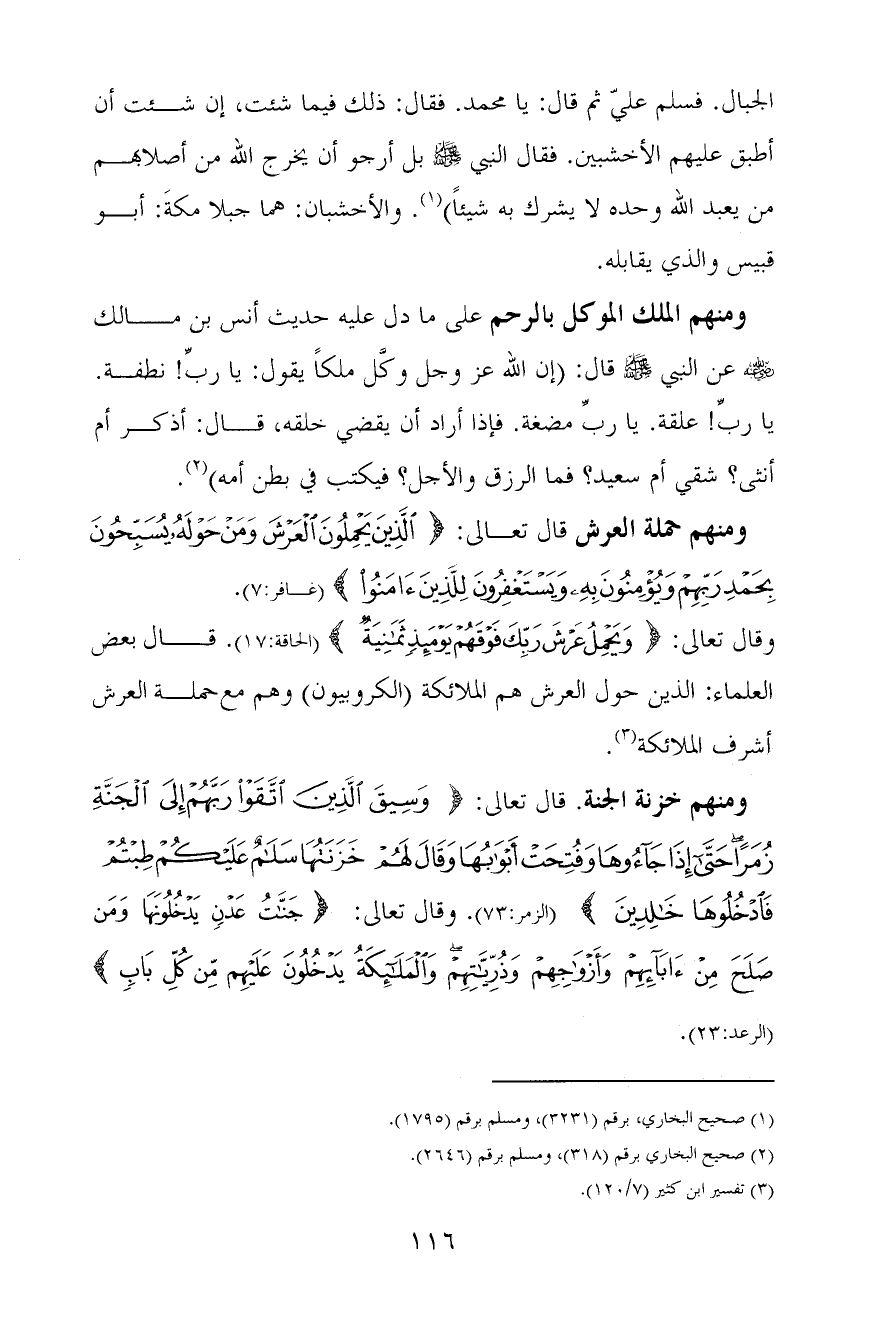 الجبال. فسلم عليّ ثم قال: يا محمد. فقال: ذلك فيما شئت، إن شـــئت أن
أطبق عليهم الأخشبين. فقال النبي ﷺ بل أرجو أن يخرج الله من أصلابهـم
من يعبد الله وحده لا يشرك به شيئاً)(١). والأخشبان: هما جبلا مكةَ: أبـــو
قبيس والذي يقابله.
ومنهم الملك الموكل بالرحم على ما دل عليه حديث أنس بن مـــالك
رضي الله عنه عن النبي ﷺ قال: (إن الله عز وجل وكَّل ملكاً يقول: يا ربِّ! نطفـــة.
يا ربِّ! علقة. يا ربِّ مضغة. فإذا أراد أن يقضي خلقه، قـــال: أذكـــر أم
أنثى؟ شقي أم سعيد؟ فما الرزق والأجل؟ فيكتب في بطن أمه)(٢).
ومنهم حملة العرش قال تعـــالى: ﴿ ٱلَّذِينَ يَحْمِلُونَ ٱلْعَرْشَ وَمَنْ حَوْلَهُۥ يُسَبِّحُونَ
بِحَمْدِ رَبِّهِمْ وَيُؤْمِنُونَ بِهِۦ وَيَسْتَغْفِرُونَ لِلَّذِينَ ءَامَنُوا۟ ﴾ (غـــافر:٧).
وقال تعالى: ﴿ وَيَحْمِلُ عَرْشَ رَبِّكَ فَوْقَهُمْ يَوْمَئِذٍ ثَمَٰنِيَةٌ ﴾ (الحاقة:١٧). قـــال بعض
العلماء: الذين حول العرش هم الملائكة (الكروبيون) وهم مع حملـــة العرش
أشرف الملائكة(٣).
ومنهم خزنة الجنة. قال تعالى: ﴿ وَسِيقَ ٱلَّذِينَ ٱتَّقَوْا۟ رَبَّهُمْ إِلَى ٱلْجَنَّةِ
زُمَرًا ۖ حَتَّىٰٓ إِذَا جَآءُوهَا وَفُتِحَتْ أَبْوَٰبُهَا وَقَالَ لَهُمْ خَزَنَتُهَا سَلَٰمٌ عَلَيْكُمْ طِبْتُمْ
فَٱدْخُلُوهَا خَٰلِدِينَ ﴾ (الزمر:٧٣). وقال تعالى: ﴿ جَنَّٰتُ عَدْنٍ يَدْخُلُونَهَا وَمَن
صَلَحَ مِنْ ءَابَآئِهِمْ وَأَزْوَٰجِهِمْ وَذُرِّيَّٰتِهِمْ ۖ وَٱلْمَلَٰٓئِكَةُ يَدْخُلُونَ عَلَيْهِم مِّن كُلِّ بَابٍ ﴾
(الرعد:٢٣).
(١) صحيح البخاري، برقم (٣٢٣١)، ومسلم برقم (١٧٩٥).
(٢) صحيح البخاري برقم (٣١٨)، ومسلم برقم (٢٦٤٦).
(٣) تفسير ابن كثير (٧/١٢٠).
١١٦